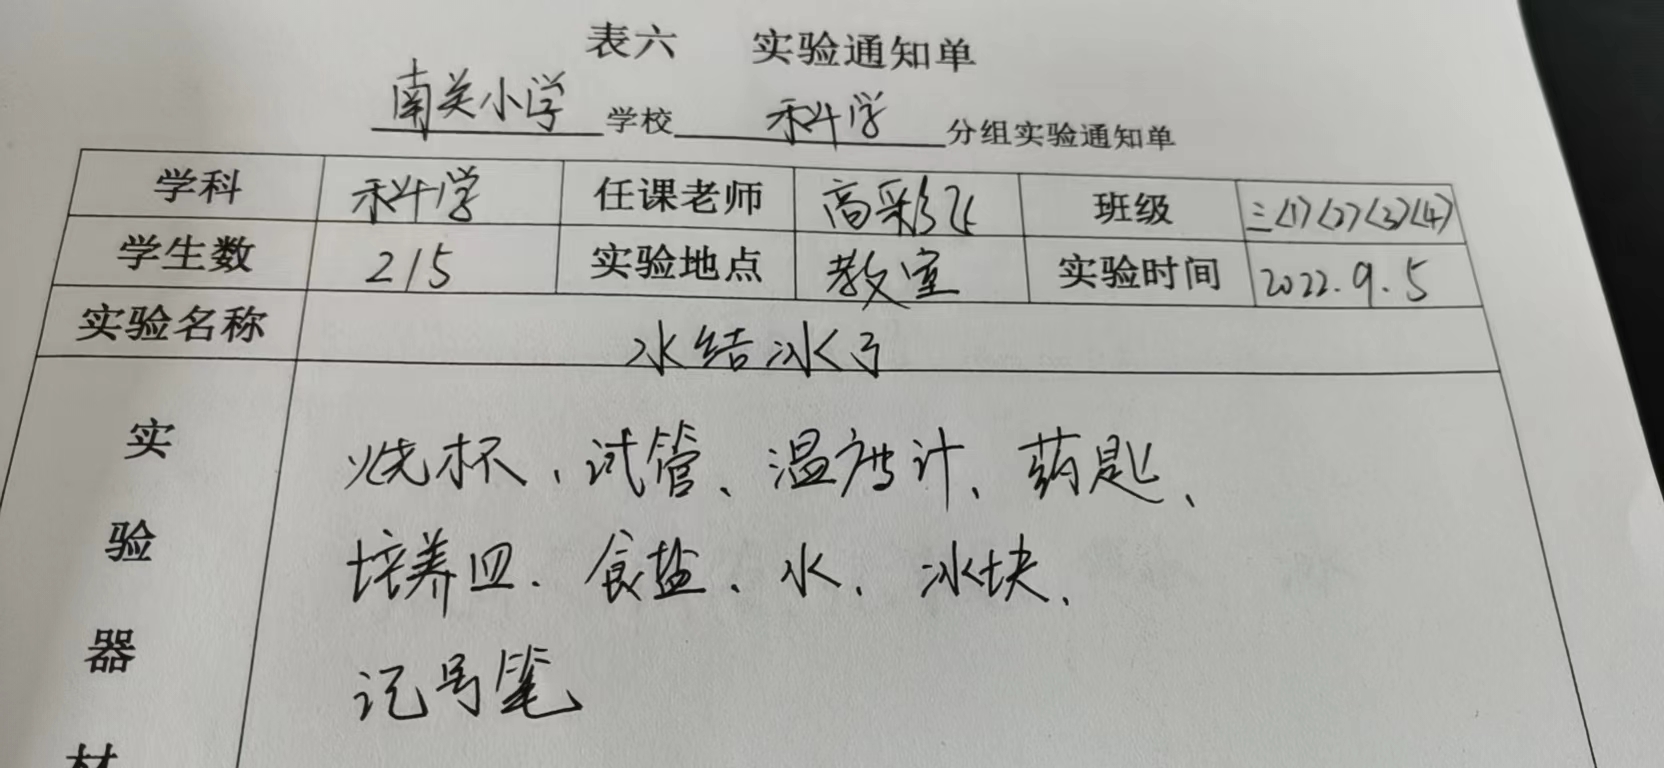 表六 实验通知单
南关小学学校 科学 分组实验通知单
学科 科学 任课老师 高彩飞 班级 三〈1〉〈2〉〈3〉〈4〉
学生数 215 实验地点 教室 实验时间 2022.9.5
实验名称 水结冰了
实验器材
烧杯、试管、温度计、药匙、
培养皿、食盐、水、冰块、
记号笔